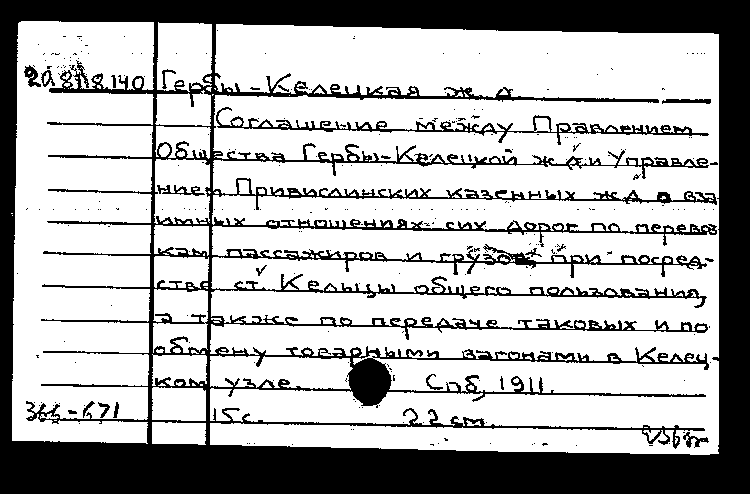 20.818.140 Гербы-Келецкая ж. д.
Соглашение между Правлением
Общества Гербы-Келецкой ж д и Управле-
нием Привислинских казенных ж д о вза
имных отношениях сих дорог по перевоз
кам пассажиров и грузов при посред-
стве ст. Кельцы общего пользования,
а также по передаче таковых и по
обмену товарными вагонами в Келец-
ком узле. Спб, 1911.
15 с. 22 см.